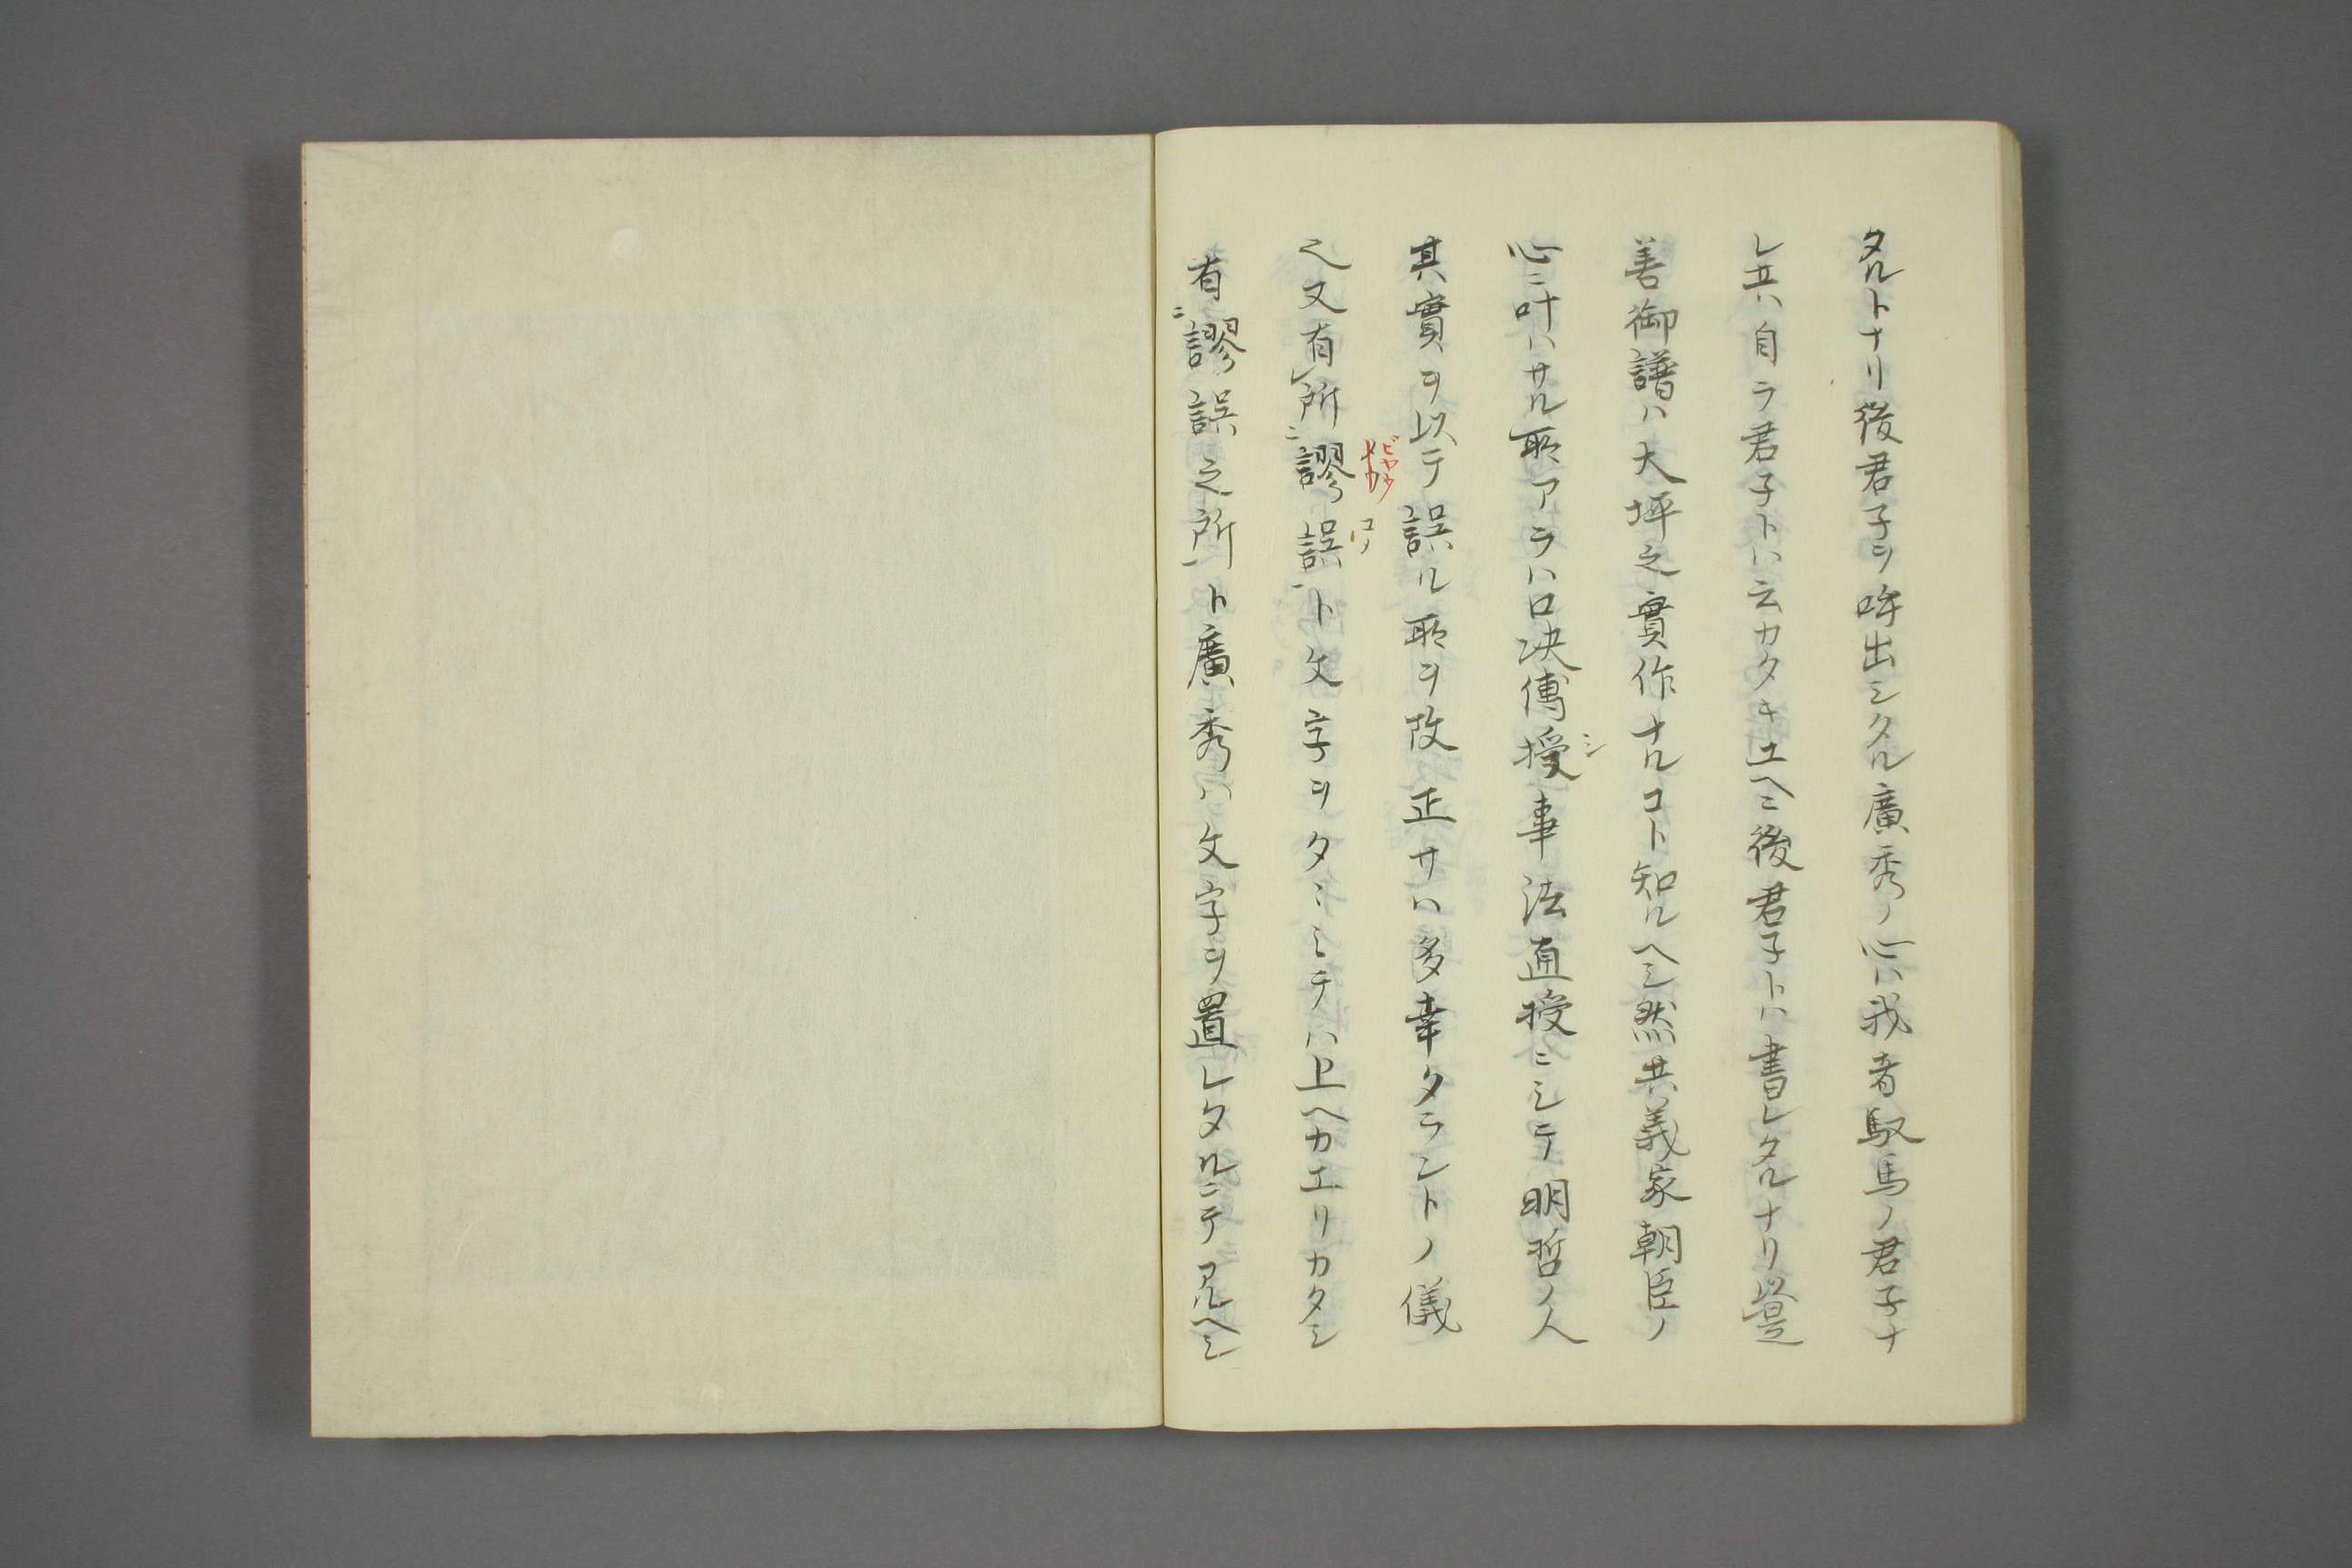 タルトナリ後君子ヲ呼出シタル廣秀ノ心ハ我者馭馬ノ君子ナ
レ共ハ自ラ君子トハ云カタキユヘニ後君子トハ書レタルナリ
善御譜ハ大坪之實作ナルコト知ルヘシ然共義家朝臣ノ
心ニ叶ハサル耶アラハ口决傳授シ事法直授ニシテ明哲ノ人
其實ヲ以テ誤ル耶ヲ改正サハ多幸タラントノ儀
之又有レ所ニ謬誤一ト文字ヲタヽミテハ上ヘカエリカタシ
有ニ謬誤之所一ト廣秀ハ文字ヲ置レタルニテアルヘシ